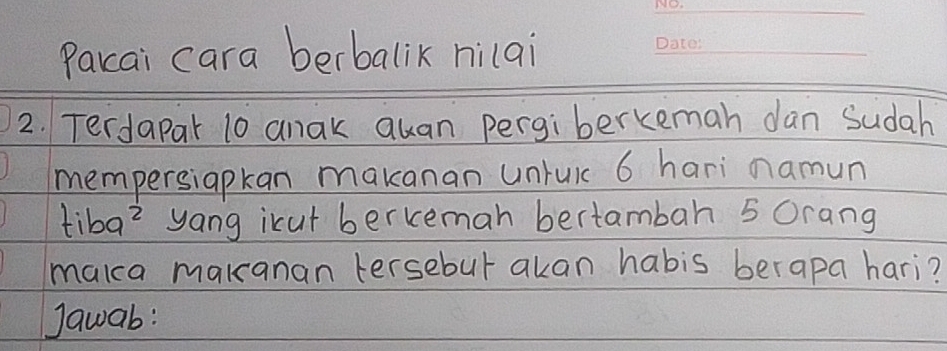 No.
Pakai cara berbalik nilai
Date:
2. Terdapat 10 anak akan pergi berkemah dan sudah
mempersiapkan makanan untuk 6 hari namun
tiba² yang ikut berkemah bertambah 5 orang
maka makanan tersebut akan habis berapa hari?
Jawab: